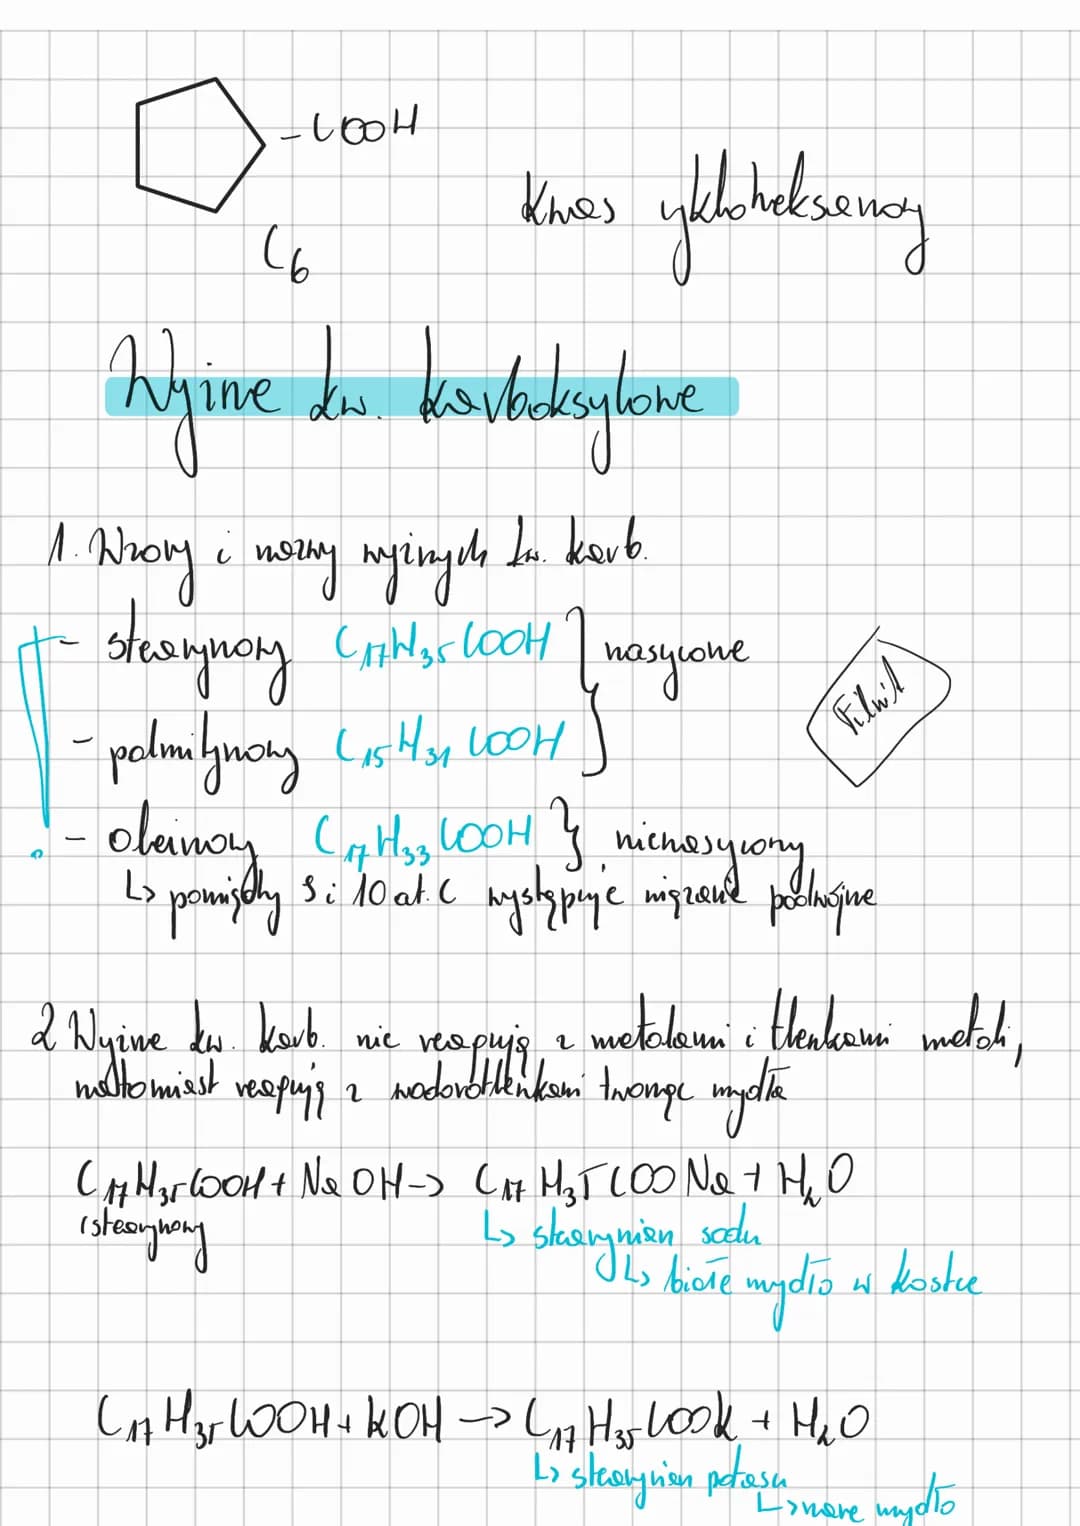 -COOH
C6
Kwas cykloheksanowy
Wyższe kw. karboksylowe
1. Wzory i nazwy wyższych kw. karb.
- stearynowy C17H35COOH } nasycone
- palmitynowy C15H31COOH
- oleinowy C17H33COOH } nienasycony
↳ pomiędzy 9 i 10 at. C występuje wiązanie podwójne
2 Wyższe kw. karb. nie reagują z metalami i tlenkami metali,
natomiast reagują z wodorotlenkami tworząc mydła
C17H35COOH + NaOH -> C17H35COONa + H2O
(stearynowy
↳ stearynian sodu
↳ białe mydło w kostce
C17H35COOH + KOH -> C17H35COOK + H2O
↳ stearynian potasu
↳ szare mydło